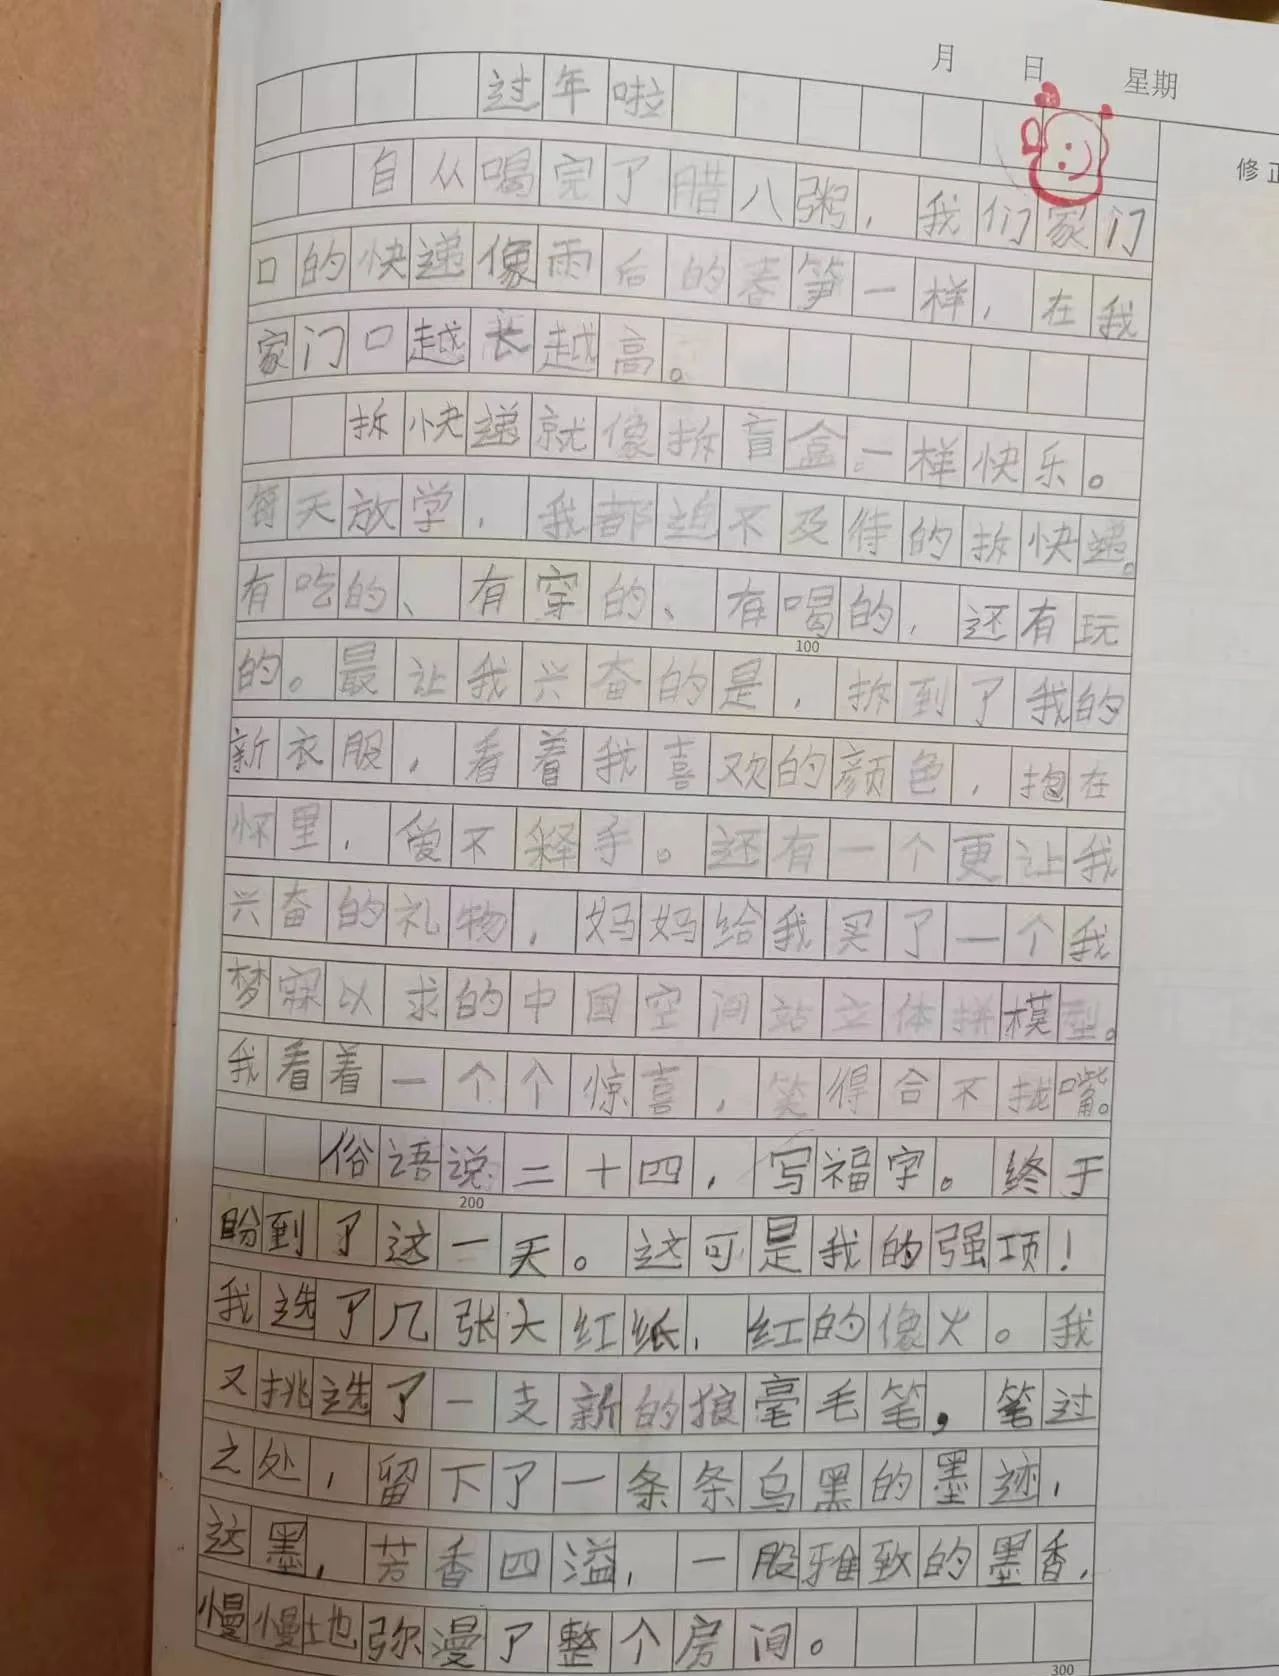 月 日 星期
修正
过年啦
自从喝完了腊八粥，我们家门
口的快递像雨后的春笋一样，在我
家门口越长越高。
拆快递就像拆盲盒一样快乐。
每天放学，我都迫不及待的拆快递。
有吃的、有穿的、有喝的，还有玩
100
的。最让我兴奋的是，拆到了我的
新衣服，看着我喜欢的颜色，抱在
怀里，爱不释手。还有一个更让我
兴奋的礼物，妈妈给我买了一个我
梦寐以求的中国空间站立体拼模型。
我看着一个个惊喜，笑得合不拢嘴。
俗语说二十四，写福字。终于
200
盼到了这一天。这可是我的强项！
我选了几张大红纸，红的像火。我
又挑选了一支新的狼毫毛笔，笔过
之处，留下了一条条乌黑的墨迹，
这墨，芳香四溢，一股雅致的墨香，
慢慢地弥漫了整个房间。
300